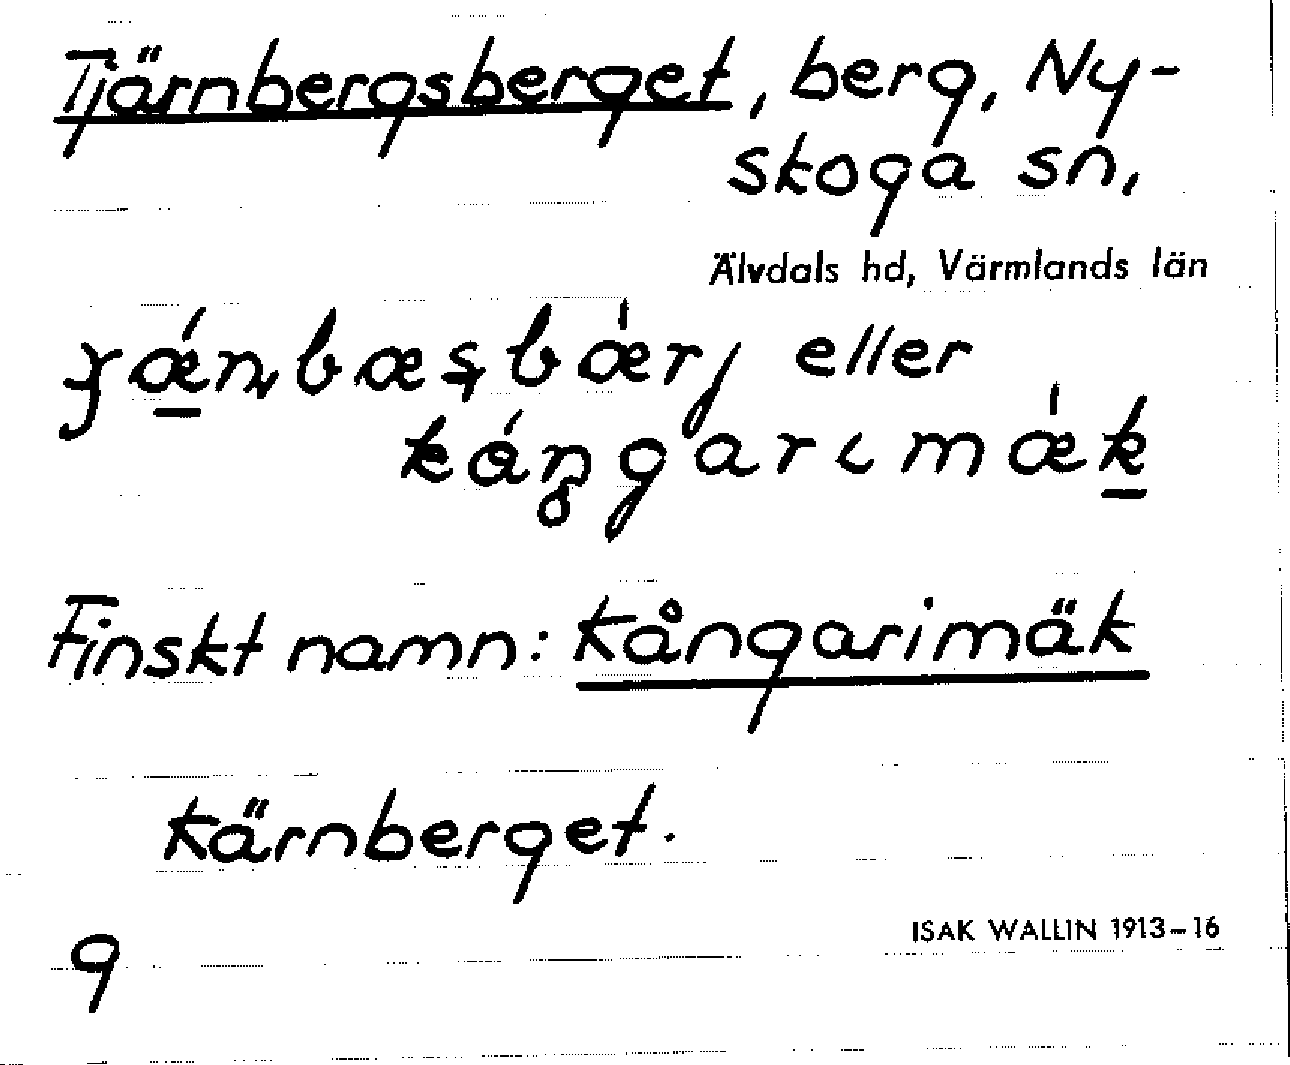 Tjärnbergsberget, berg, Ny-
skoga sn,
Älvdals hd, Värmlands län
eller
Finskt namn: Kångarimäk
Kärnberget.
9
ISAK WALLIN 1913-16